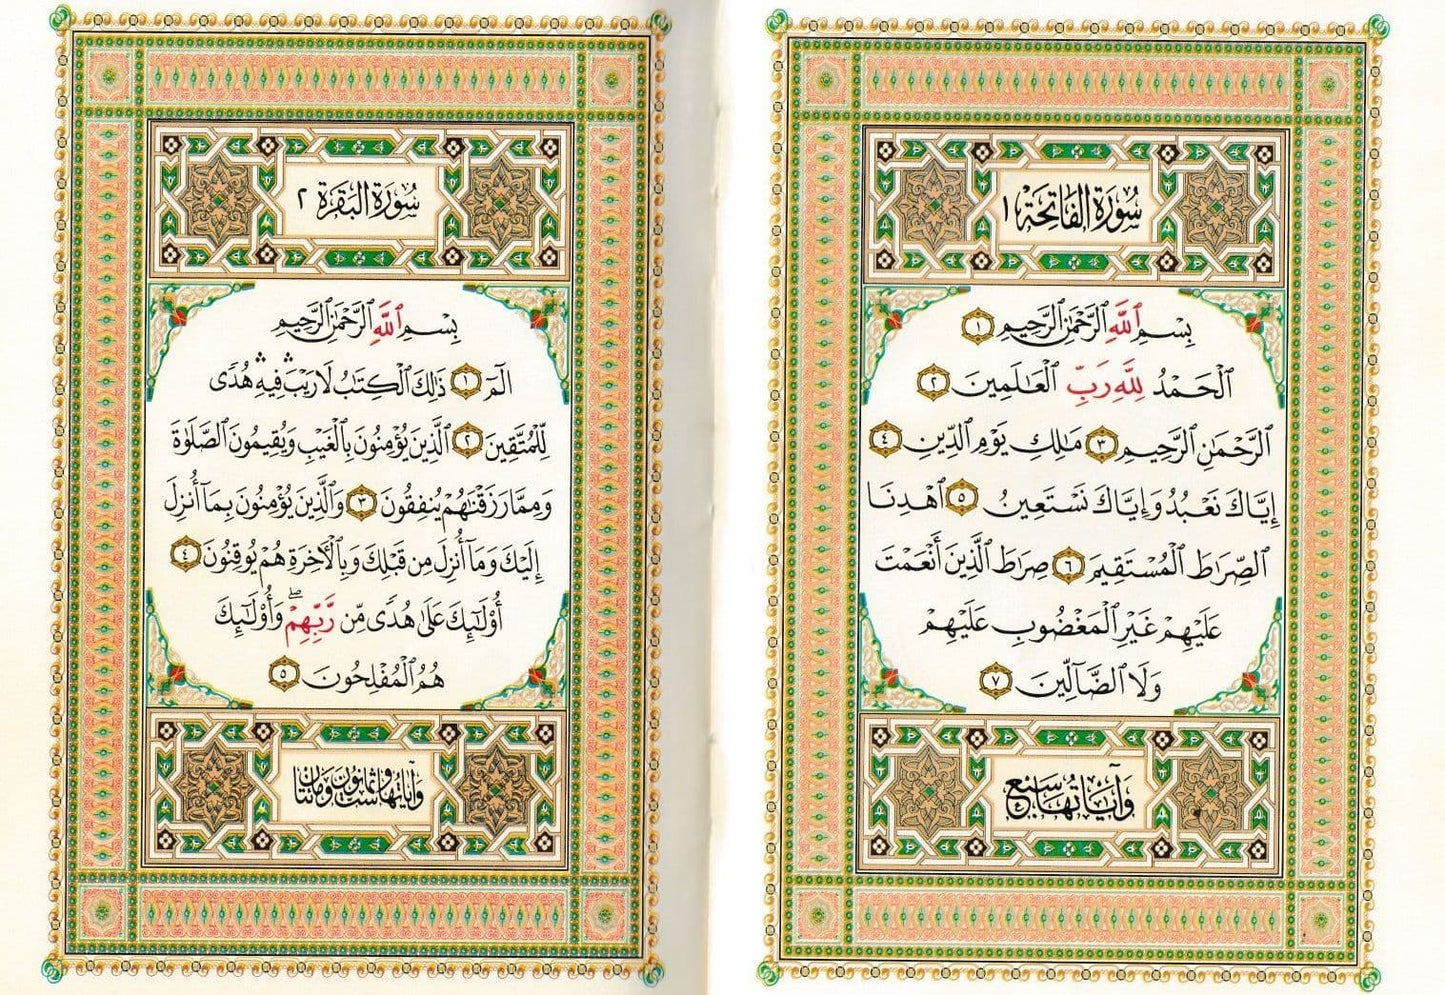 سُورَةُ الفَاتِحَة ١
بِسْمِ ٱللَّهِ ٱلرَّحْمَٰنِ ٱلرَّحِيمِ ١
ٱلْحَمْدُ لِلَّهِ رَبِّ ٱلْعَٰلَمِينَ ٢
ٱلرَّحْمَٰنِ ٱلرَّحِيمِ ٣ مَٰلِكِ يَوْمِ ٱلدِّينِ ٤
إِيَّاكَ نَعْبُدُ وَإِيَّاكَ نَسْتَعِينُ ٥ ٱهْدِنَا
ٱلصِّرَٰطَ ٱلْمُسْتَقِيمَ ٦ صِرَٰطَ ٱلَّذِينَ أَنْعَمْتَ
عَلَيْهِمْ غَيْرِ ٱلْمَغْضُوبِ عَلَيْهِمْ
وَلَا ٱلضَّآلِّينَ ٧
وَآيَاتُهَا سَبْعٌ
سُورَةُ البَقَرَة ٢
بِسْمِ ٱللَّهِ ٱلرَّحْمَٰنِ ٱلرَّحِيمِ
الٓمٓ ١ ذَٰلِكَ ٱلْكِتَٰبُ لَا رَيْبَ ۛ فِيهِ ۛ هُدًى
لِّلْمُتَّقِينَ ٢ ٱلَّذِينَ يُؤْمِنُونَ بِٱلْغَيْبِ وَيُقِيمُونَ ٱلصَّلَوٰةَ
وَمِمَّا رَزَقْنَٰهُمْ يُنفِقُونَ ٣ وَٱلَّذِينَ يُؤْمِنُونَ بِمَآ أُنزِلَ
إِلَيْكَ وَمَآ أُنزِلَ مِن قَبْلِكَ وَبِٱلْءَاخِرَةِ هُمْ يُوقِنُونَ ٤
أُوْلَٰٓئِكَ عَلَىٰ هُدًى مِّن رَّبِّهِمْ ۖ وَأُوْلَٰٓئِكَ
هُمُ ٱلْمُفْلِحُونَ ٥
وَآيَاتُهَا سِتٌّ وَثَمَانُونَ وَمِائَتَانِ